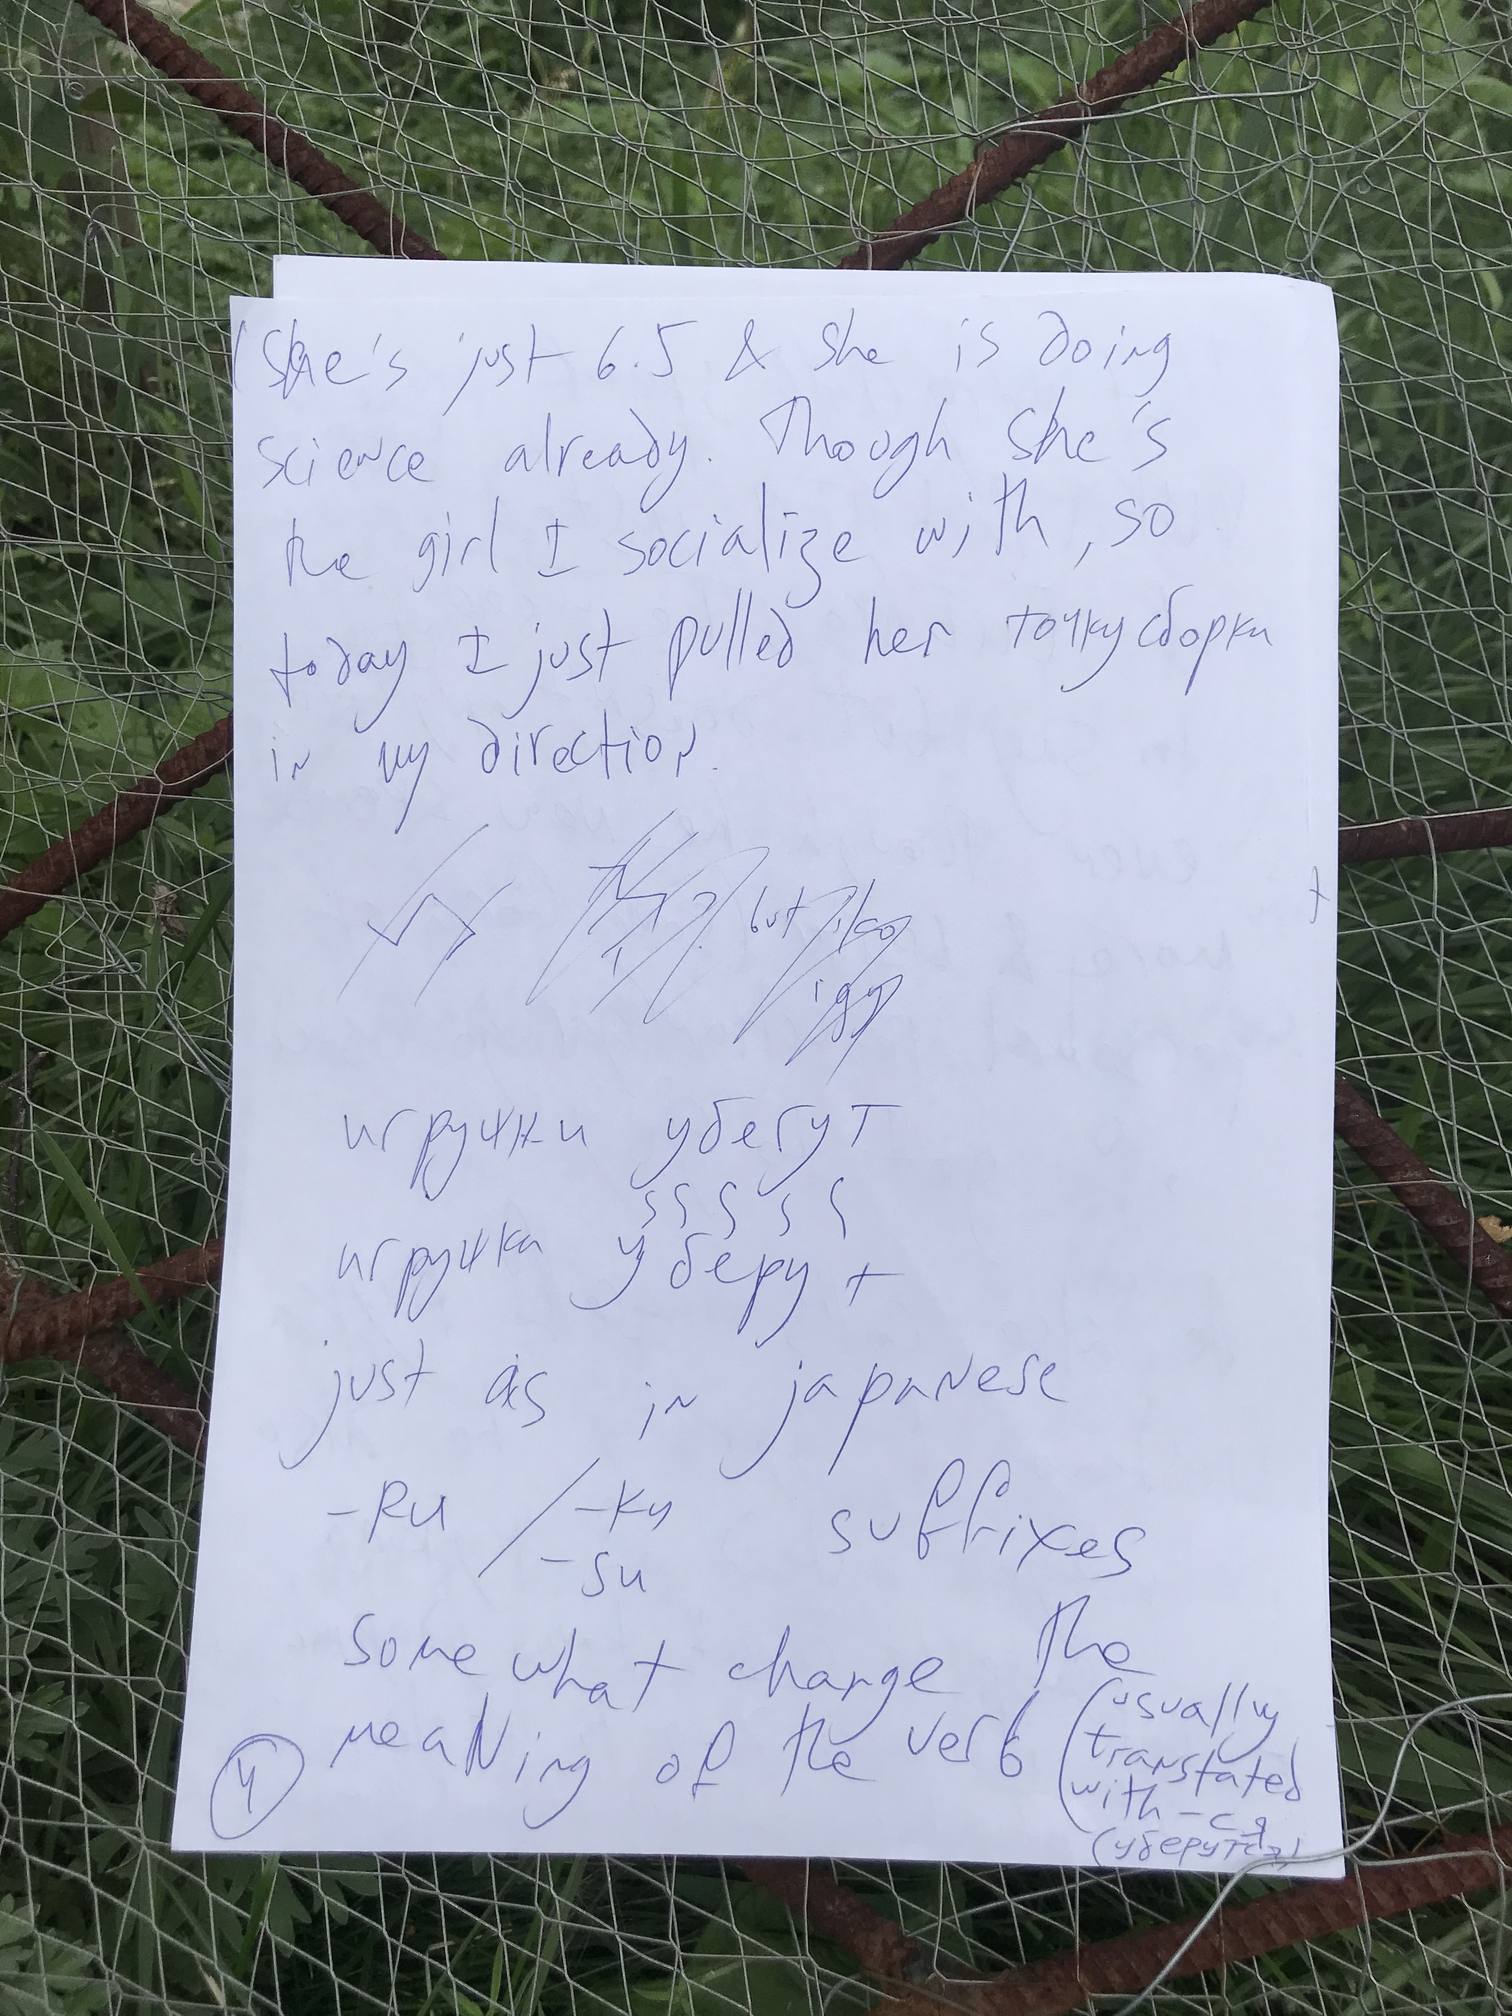 (She's just 6.5 & she is doing
science already. Though she's
the girl I socialize with, so
today I just pulled her точку сборки
in my direction.
but
игручки убегут
игручки уберут
just as in japanese
-RU / -KU suffixes
-SU
somewhat change the
meaning of the verb (usually
translated
with -ся
(уберутся)
4